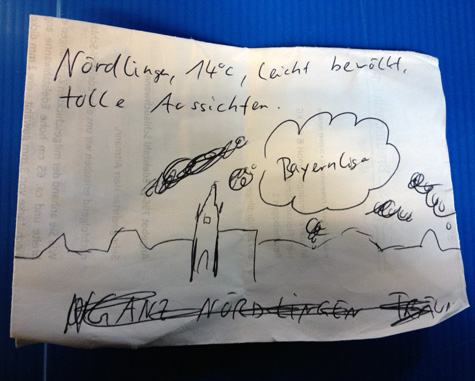 Nördlingen, 14°C, leicht bewölkt,
tolle Aussichten.
Bayernliga
GANZ NÖRDLINGEN